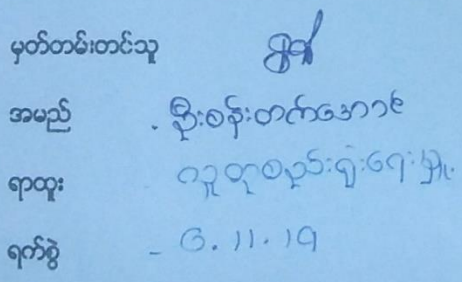 မှတ်တမ်းတင်သူ
အမည် - ဦးစန်းတက်အောင်
ရာထူး လူထုစည်းရုံးရေးမှူး
ရက်စွဲ - 6.11.19